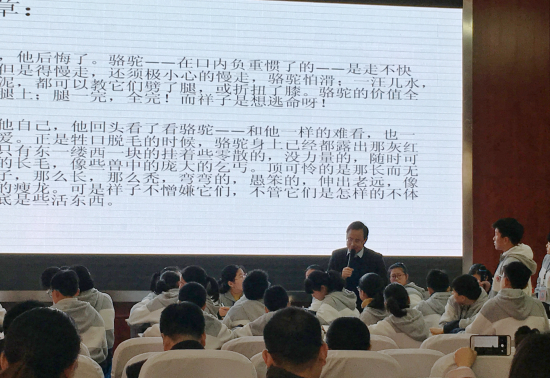 章：
，他后悔了。骆驼——在口内负重惯了的——是走不快
但是得慢走，还须极小心的慢走，骆驼怕滑；一汪儿水，
泥，都可以教它们劈了腿，或折扭了膝。骆驼的价值全
腿上；腿一完，全完！而祥子是想逃命呀！
他自己，他回头看了看骆驼——和他一样的难看，也一
爱。正是牲口脱毛的时候，骆驼身上已经都露出那灰红
只有东一缕西一块的挂着些零散的，没力量的，随时可
的长毛，像些兽中的庞大的乞丐。顶可怜的是那长而无
子，那么长，那么秃，弯弯的，愚笨的，伸出老远，像
的瘦龙。可是祥子不憎嫌它们，不管它们是怎样的不体
底是些活东西。